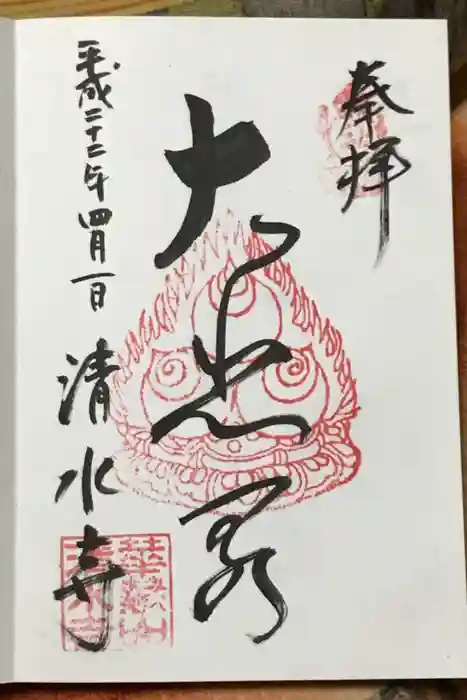 奉拝
大悲閣
平成二十二年四月一日
清水寺